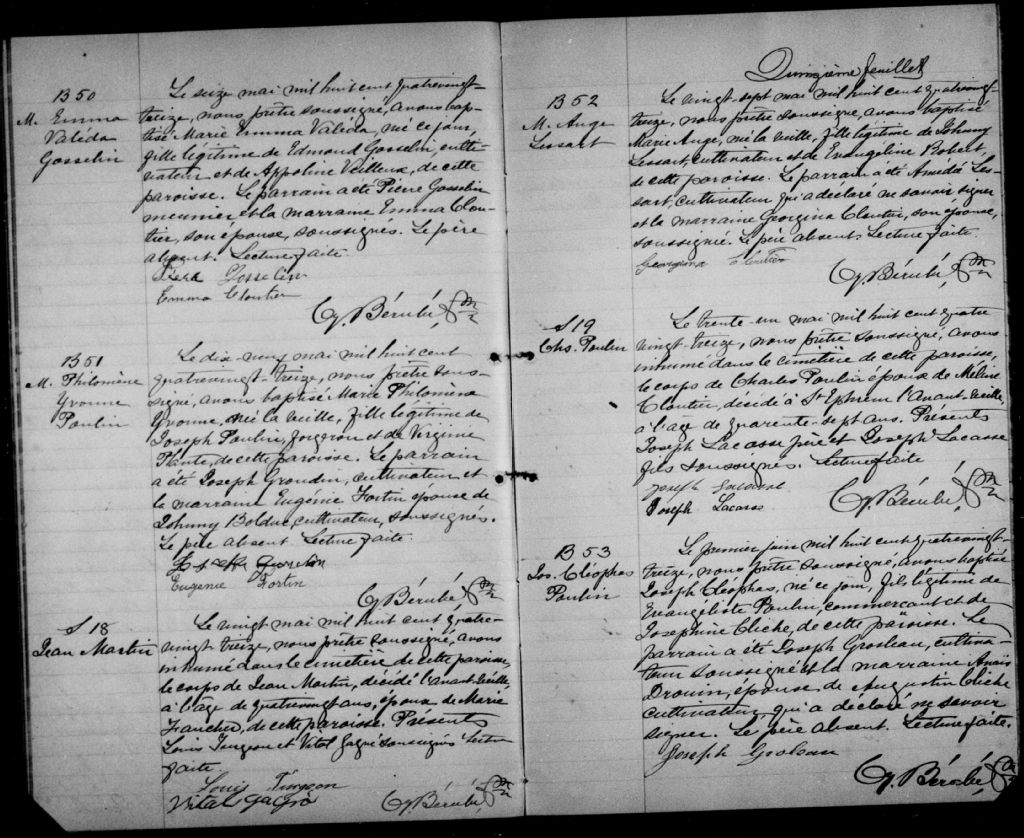 B 50
M. Emma
Valéda
Gosselin
Le seize mai mil huit cent quatrevingt-
treize, nous prêtre soussigné, avons bap-
tisé Marie Emma Valéda, née ce jour,
fille légitime de Edmond Gosselin, culti-
vateur et de Appoline Veilleux, de cette
paroisse. Le parrain a été Pierre Gosselin
meunier et la marraine Emma Clou-
tier, son épouse, soussignés. Le père
absent. Lecture faite.
Gosselin
Emma Cloutier
Bérubé, Ptre
B 51
M. Philomène
Yvonne
Poulin
Le dix-neuf mai mil huit cent
quatrevingt-treize, nous prêtre sous-
signé, avons baptisé Marie Philomène
Yvonne, née la veille, fille légitime de
Joseph Poulin, forgeron et de Virginie
Plante, de cette paroisse. Le parrain
a été Joseph Grondin, cultivateur et
la marraine Eugénie Fortin épouse de
Johnny Bolduc, cultivateur, soussignés.
Le père absent. Lecture faite.
Eugenie Fortin
Bérubé, Ptre
S 18
Jean Martin
Le vingt mai mil huit cent quatre-
vingt treize, nous prêtre soussigné, avons
inhumé dans le cimetière de cette paroisse,
le corps de Jean Martin, décédé l'avant-veille,
à l'age de quatrevingt ans, époux de Marie
Faucher, de cette paroisse. Présents
Louis Turgeon et Vital Gagné soussignés Lecture
faite.
Louis Turgeon
Vital Gagné
Bérubé, Ptre
Quinzième feuillet
B 52
M. Ange
Lessart
Le vingt-sept mai mil huit cent quatrevingt-
treize, nous prêtre soussigné, avons baptisé
Marie Ange, née la veille, fille légitime de Johnny
Lessart, cultivateur et de Evangeline Robert,
de cette paroisse. Le parrain a été Amédé Les-
sart, cultivateur qui a déclaré ne savoir signer
et la marraine Georgina Cloutier, son épouse,
soussignée. Le père absent. Lecture faite.
Georgina Cloutier
Bérubé, Ptre
S 19
Chs. Poulin
Le trente-un mai mil huit cent quatre
vingt-treize, nous prêtre soussigné, avons
inhumé dans le cimetière de cette paroisse,
le corps de Charles Poulin époux de
Cloutier, décédé à St Ephrem l'avant-veille,
à l'age de quarente-sept ans. Présents
Joseph Lacasse père et Joseph Lacasse
fils soussignés. Lecture faite
Joseph Lacasse
Joseph Lacasse
Bérubé, Ptre
B 53
Jos. Cléophas
Poulin
Le premier juin mil huit cent quatrevingt-
treize, nous prêtre soussigné, avons baptisé
Joseph Cléophas, né ce jour, fils légitime de
Evangéliste Poulin, commerçant et de
Josephine Cliche, de cette paroisse. Le
parrain a été Joseph Groleau, cultiva-
teur soussigné et la marraine Anaïs
Drouin, épouse de Augustin Cliche
cultivateur, qui a déclaré ne savoir
signer. Le père absent. Lecture faite.
Joseph Groleau
Bérubé, Ptre